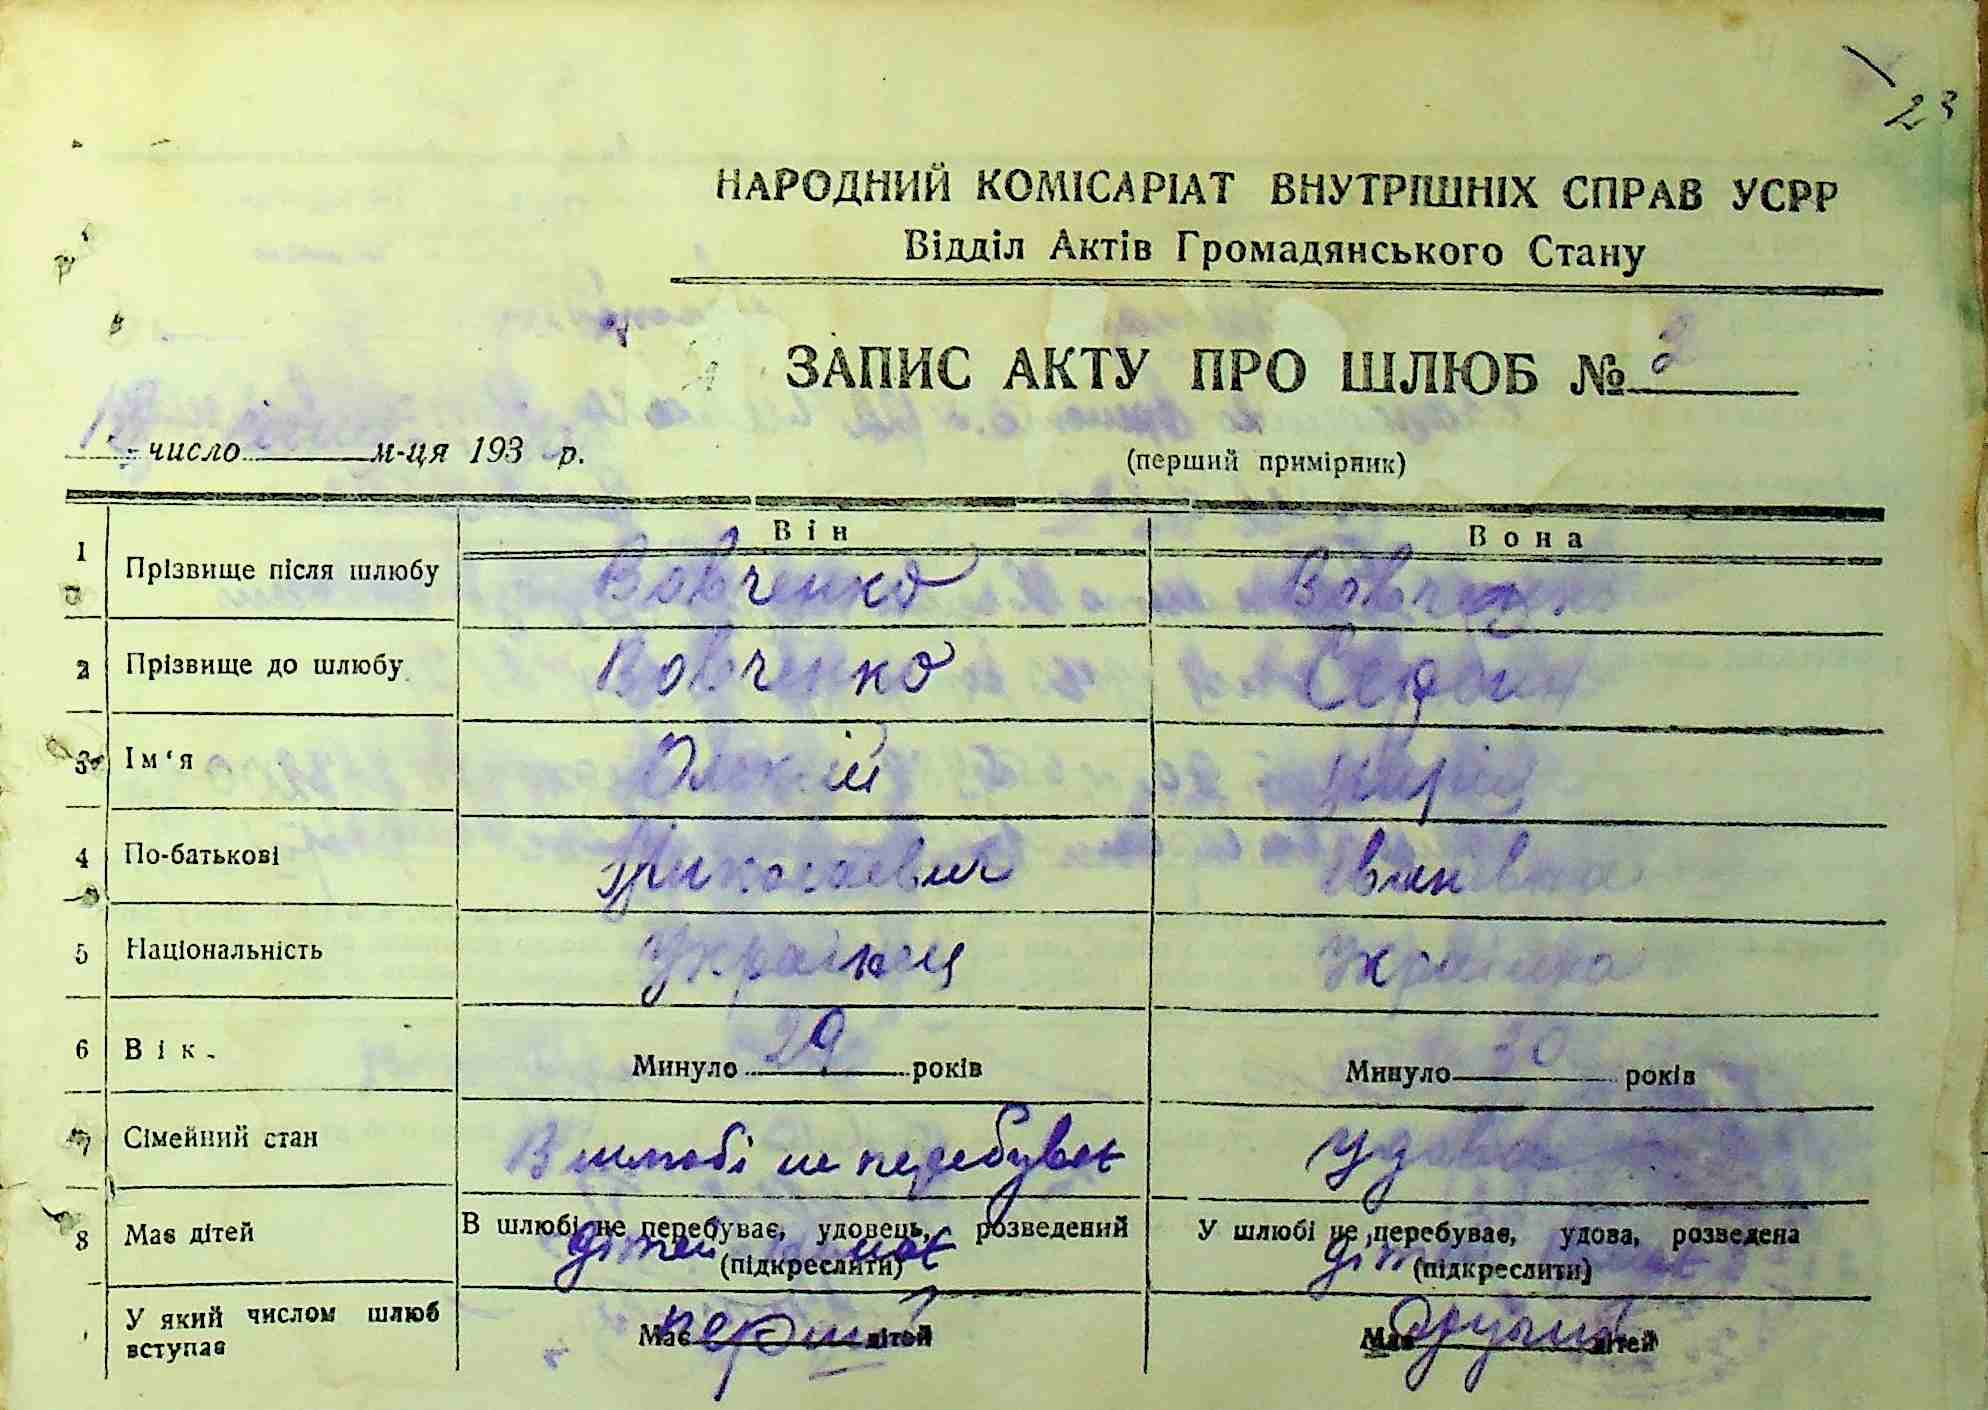 23
НАРОДНИЙ КОМІСАРІАТ ВНУТРІШНІХ СПРАВ УСРР
Відділ Актів Громадянського Стану
ЗАПИС АКТУ ПРО ШЛЮБ № 2
число м-ця 193 р.
(перший примірник)
Він Вона
1 Прізвище після шлюбу Вовченко Вовченко
2 Прізвище до шлюбу Вовченко
3 Ім'я Олексій
4 По-батькові Миколаевич Іванівна
5 Національність Українец Українка
6 Вік. Минуло 29 років Минуло 30 років
7 Сімейний стан В шлюбі не перебував Удова
8 Має дітей В шлюбі не перебуває, удовець, розведений У шлюбі не перебуває, удова, розведена
(підкреслити) (підкреслити)
дітей
У який числом шлюб вступає Має перший дітей Має другий дітей